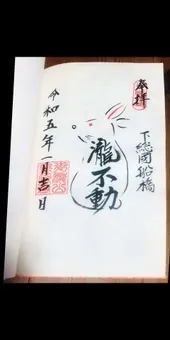 奉拝
下総國船橋
瀧不動
令和五年一月吉日